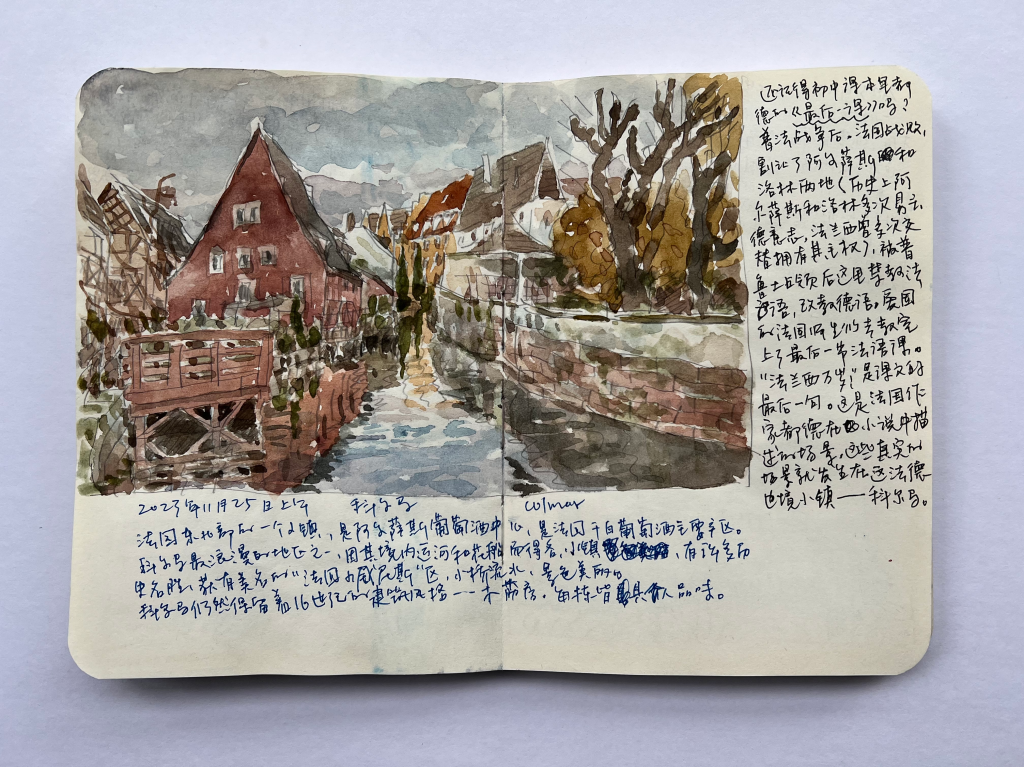 还记得初中课本里都
德的《最后一课》吗？
普法战争后，法国战败，
割让了阿尔萨斯和
洛林两地（历史上阿
尔萨斯和洛林多次易主
德意志，法兰西曾多次交
替拥有其主权），被普
鲁士占领后这里禁教法
语，改教德语。爱国
的法国师生们去教完
上了最后一节法语课。
“法兰西万岁！”是课文的
最后一句。这是法国作
家都德在小说中描
述的场景，这些真实的
场景就发生在这法德
边境小镇——科尔马。
2023年11月25日上午 科尔马 Colmar
法国东北部的一个小镇，是阿尔萨斯葡萄酒中心，是法国干白葡萄酒主要产区。
科尔马最浪漫的地区之一，因其境内运河和花船而得名，小镇，有许多历
史名胜，获有美名的“法国小威尼斯”区，小桥流水，景色美丽。
科尔马仍然保留着16世纪的建筑风格——木筋房，每栋皆具人品味。